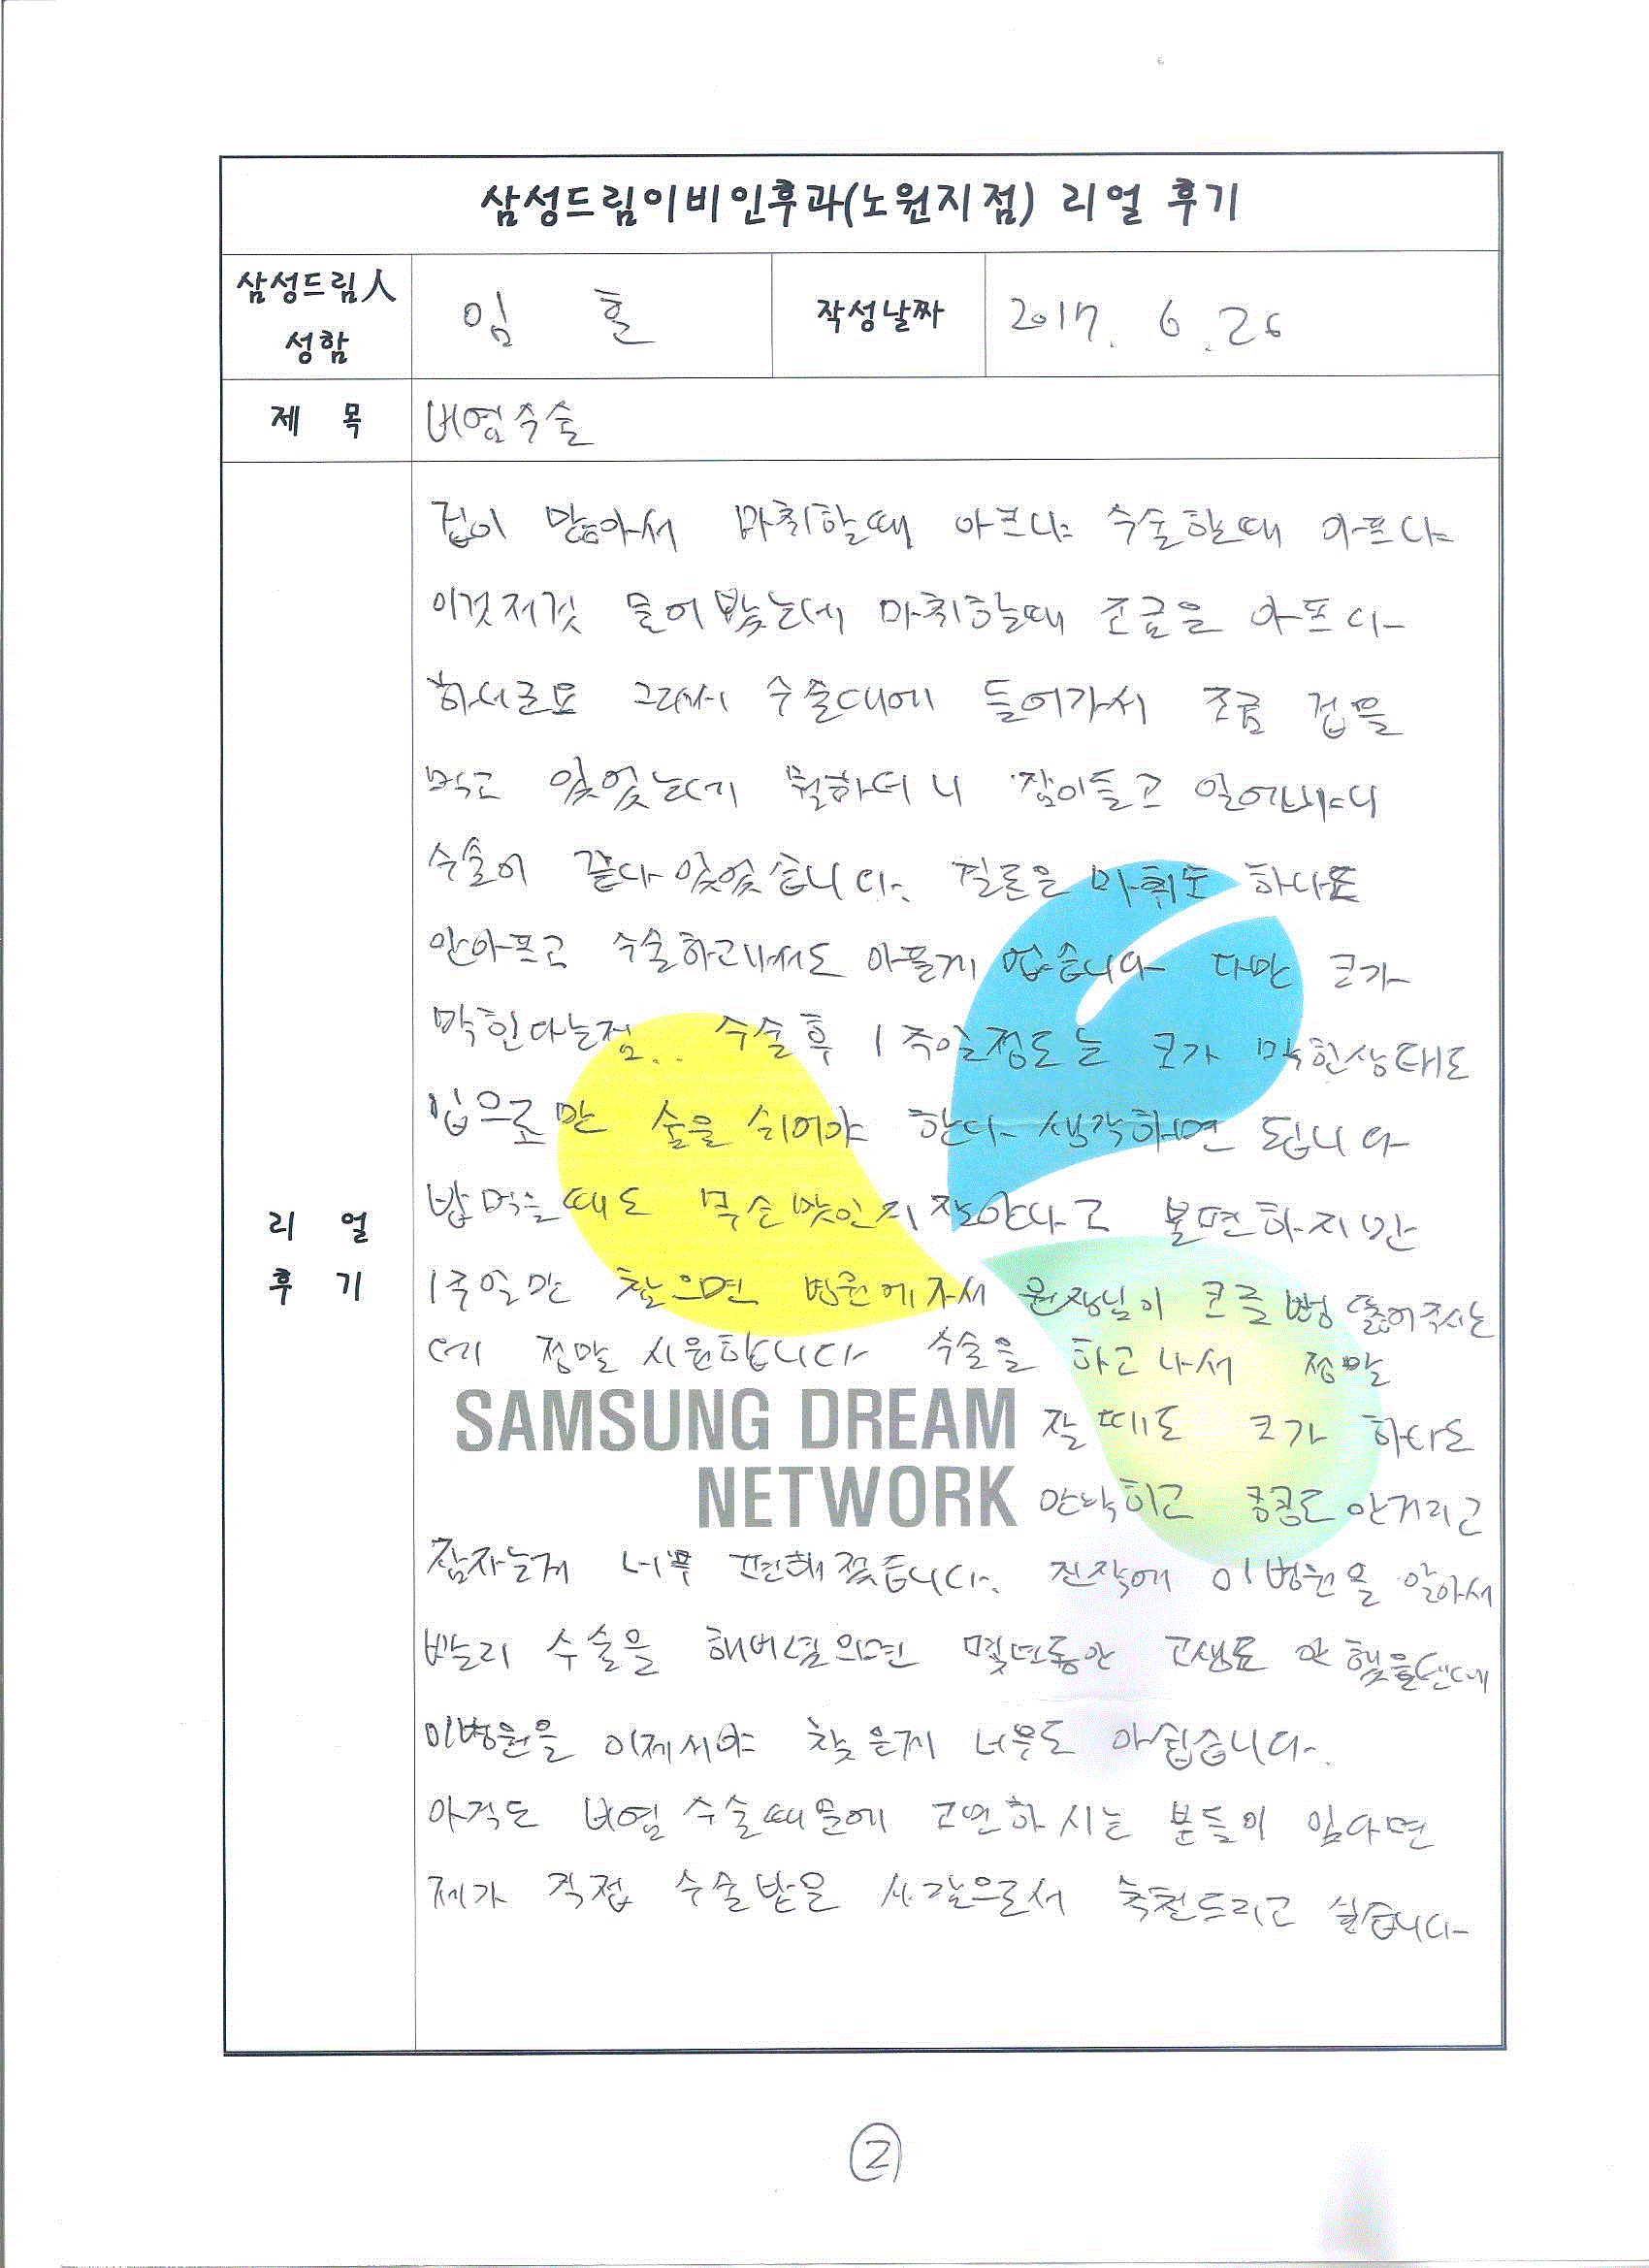 삼성드림이비인후과(노원지점) 리얼 후기
삼성드림人
성함
임 훈
작성날짜
2017. 6. 26
제 목
비염수술
겁이 많아서 마취할때 아프냐 수술할때 아프냐
이것저것 물어봤는데 마취할때 조금은 아프다
하더군요 그래서 수술대에 들어가서 조금 겁을
먹고 있었는데 뭘하더니 잠이들고 일어나니
수술이 끝나 있었습니다. 결론은 마취도 하나도
안아프고 수술하고나서도 아플게 없습니다 다만 코가
막힌다는점.. 수술후 1주일정도는 코가 막힌상태로
입으로만 숨을 쉬어야 한다 생각하면 됩니다
밥먹을때도 무슨맛인지 잘안나고 불편하지만
1주일만 참으면 병원에가서 원장님이 코를 뻥 뚫어주시는
데 정말 시원합니다 수술을 하고 나서 정말
SAMSUNG DREAM
잘 때도 코가 하나도
NETWORK
안막히고 킁킁도 안거리고
잠자는게 너무 편해졌습니다. 진작에 이병원을 알아서
빨리 수술을 해버렸으면 몇년동안 고생도 안했을텐데
이병원을 이제서야 찾은게 너무도 아쉽습니다.
아직도 비염 수술때문에 고민하시는 분들이 있다면
제가 직접 수술받은 사람으로서 추천드리고 싶습니다
리 얼
후 기
②